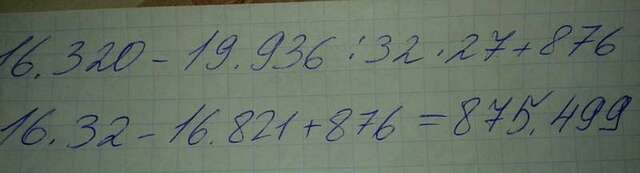 16.320 - 19.936 : 32 · 27 + 876
16.32 - 16.821 + 876 = 875.499